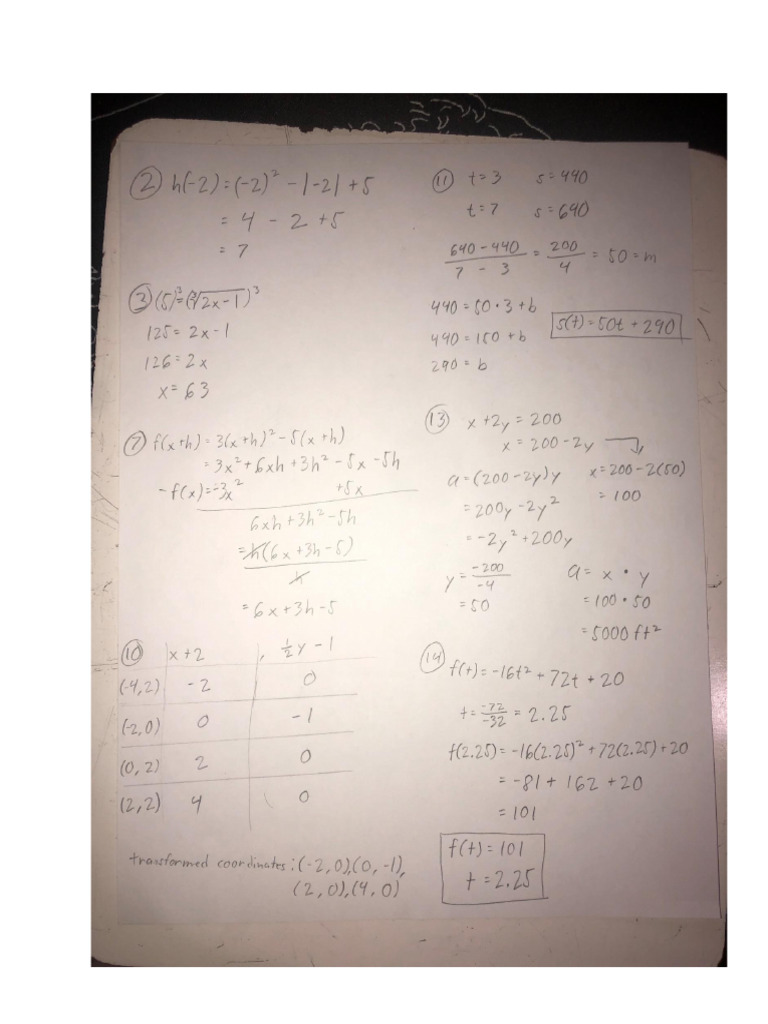 ② h(-2) = (-2)² - |-2| + 5
= 4 - 2 + 5
= 7
③ (5)³ = (∛2x-1)³
125 = 2x - 1
126 = 2x
x = 63
⑦ f(x+h) = 3(x+h)² - 5(x+h)
= 3x² + 6xh + 3h² - 5x - 5h
- f(x) = -3x² +5x
6xh + 3h² - 5h
= h(6x + 3h - 5)
h
= 6x + 3h - 5
⑩ x+2 , ½y - 1
(-4,2) -2 0
(-2,0) 0 -1
(0,2) 2 0
(2,2) 4 0
transformed coordinates: (-2,0),(0,-1),
(2,0),(4,0)
⑪ t = 3 s = 440
t = 7 s = 640
640 - 440 / 7 - 3 = 200 / 4 = 50 = m
440 = 50 • 3 + b
440 = 150 + b
290 = b
s(t) = 50t + 290
⑬ x + 2y = 200
x = 200 - 2y
a = (200 - 2y)y x = 200 - 2(50)
= 200y - 2y² = 100
= -2y² + 200y
y = -200 / -4 a = x • y
= 50 = 100 • 50
= 5000 ft²
⑭ f(t) = -16t² + 72t + 20
t = -72 / -32 = 2.25
f(2.25) = -16(2.25)² + 72(2.25) + 20
= -81 + 162 + 20
= 101
f(t) = 101
t = 2.25